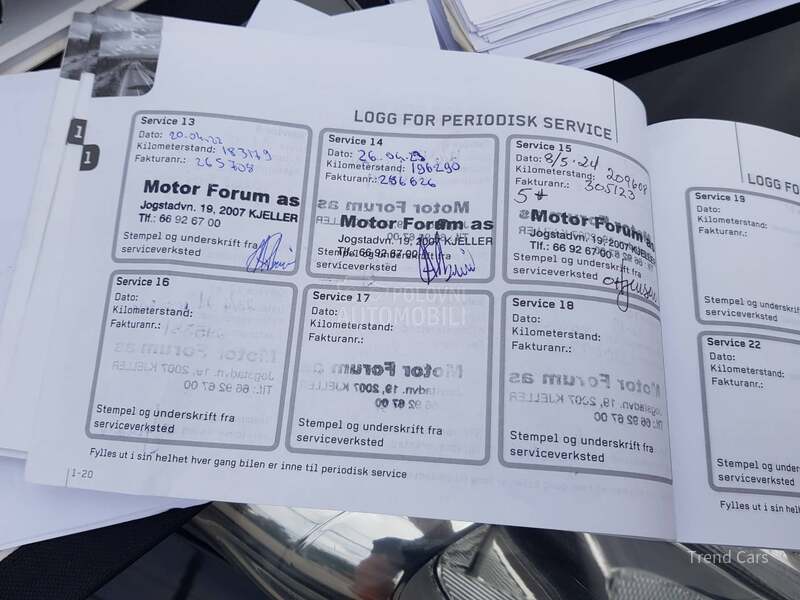 LOGG FOR PERIODISK SERVICE
Service 13
Dato: 20.04.22
Kilometerstand: 183179
Fakturanr.: 265708
Motor Forum as
Jogstadvn. 19, 2007 KJELLER
Tlf.: 66 92 67 00
Stempel og underskrift fra
serviceverksted
Service 14
Dato: 26.04.23
Kilometerstand: 196290
Fakturanr.: 286626
Motor Forum as
Jogstadvn. 19, 2007 KJELLER
Tlf.: 66 92 67 00
Stempel og underskrift fra
serviceverksted
Service 15
Dato: 8/5-24 209608
Kilometerstand:
Fakturanr.: 305123
Motor Forum as
Jogstadvn. 19, 2007 KJELLER
Tlf.: 66 92 67 00
Stempel og underskrift fra
serviceverksted
Service 16
Dato:
Kilometerstand:
Fakturanr.:
Stempel og underskrift fra
serviceverksted
Service 17
Dato:
Kilometerstand:
Fakturanr.:
Stempel og underskrift fra
serviceverksted
Service 18
Dato:
Kilometerstand:
Fakturanr.:
Stempel og underskrift fra
serviceverksted
Fylles ut i sin helhet hver gang bilen er inne til periodisk service
1-20
1
1
LOGG FO
Service 19
Dato:
Kilometerstand:
Fakturanr.:
Stempel og underskrif
serviceverksted
Service 22
Dato:
Kilometerstand:
Fakturanr.:
Stempel og underskrif
serviceverksted
Fylles ut i sin helh
POLOVNI
AUTOMOBILI
Trend Cars